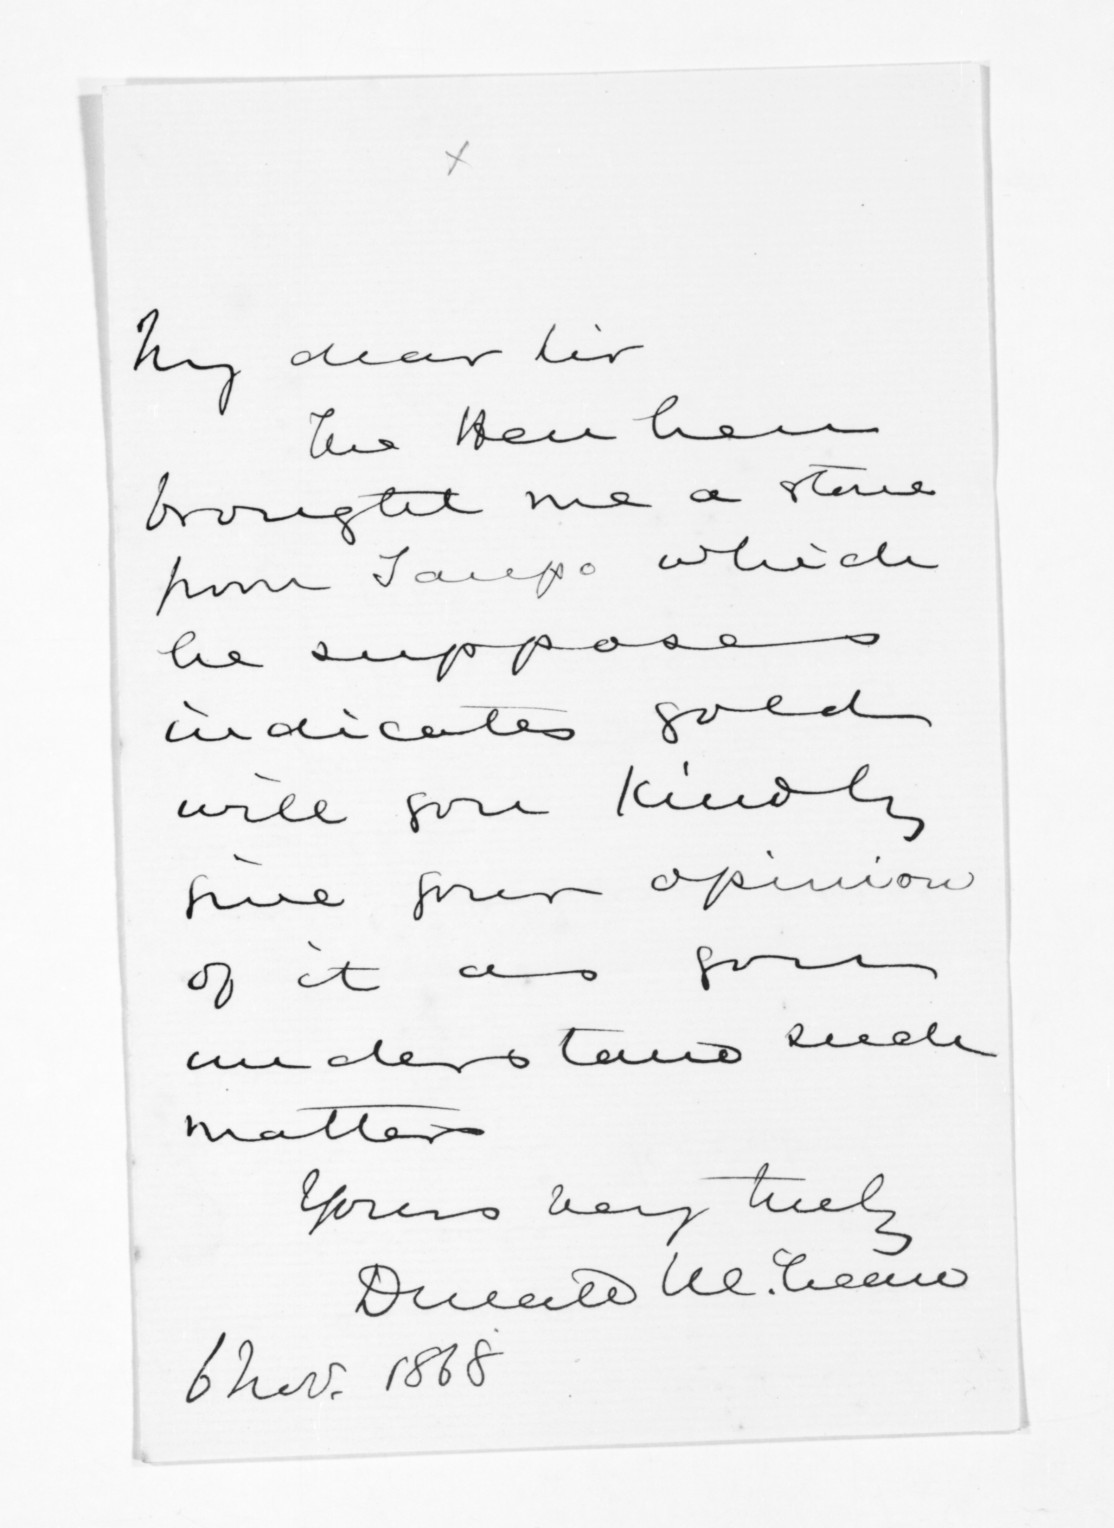 x
My dear Sir
The
brought me a stone
from Taupo which
he supposes
indicates gold
will you kindly
give your opinion
of it as you
understand such
matters
Yours very truly
Donald McLean
6 Nov. 1868